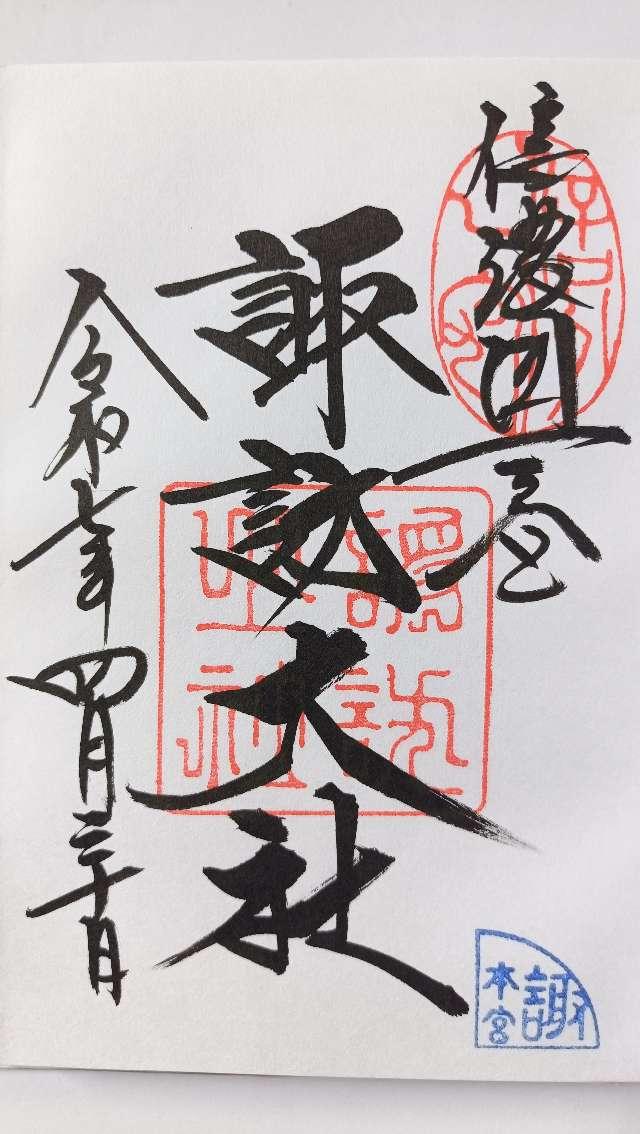 信濃國一之宮
諏訪大社
令和七年四月三十日
諏
本宮